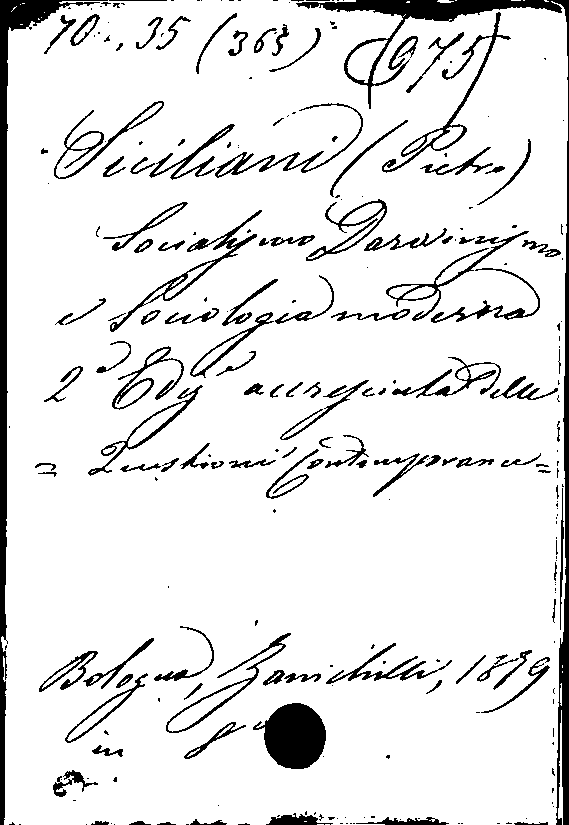 70., 35 (363) (675)
Siciliani (Pietro)
Socialismo Darwinismo
e Sociologia moderna
2ª Edne accresciuta delle
= Questioni Contemporanee =
Bologna, Zanichelli, 1879
in 8º